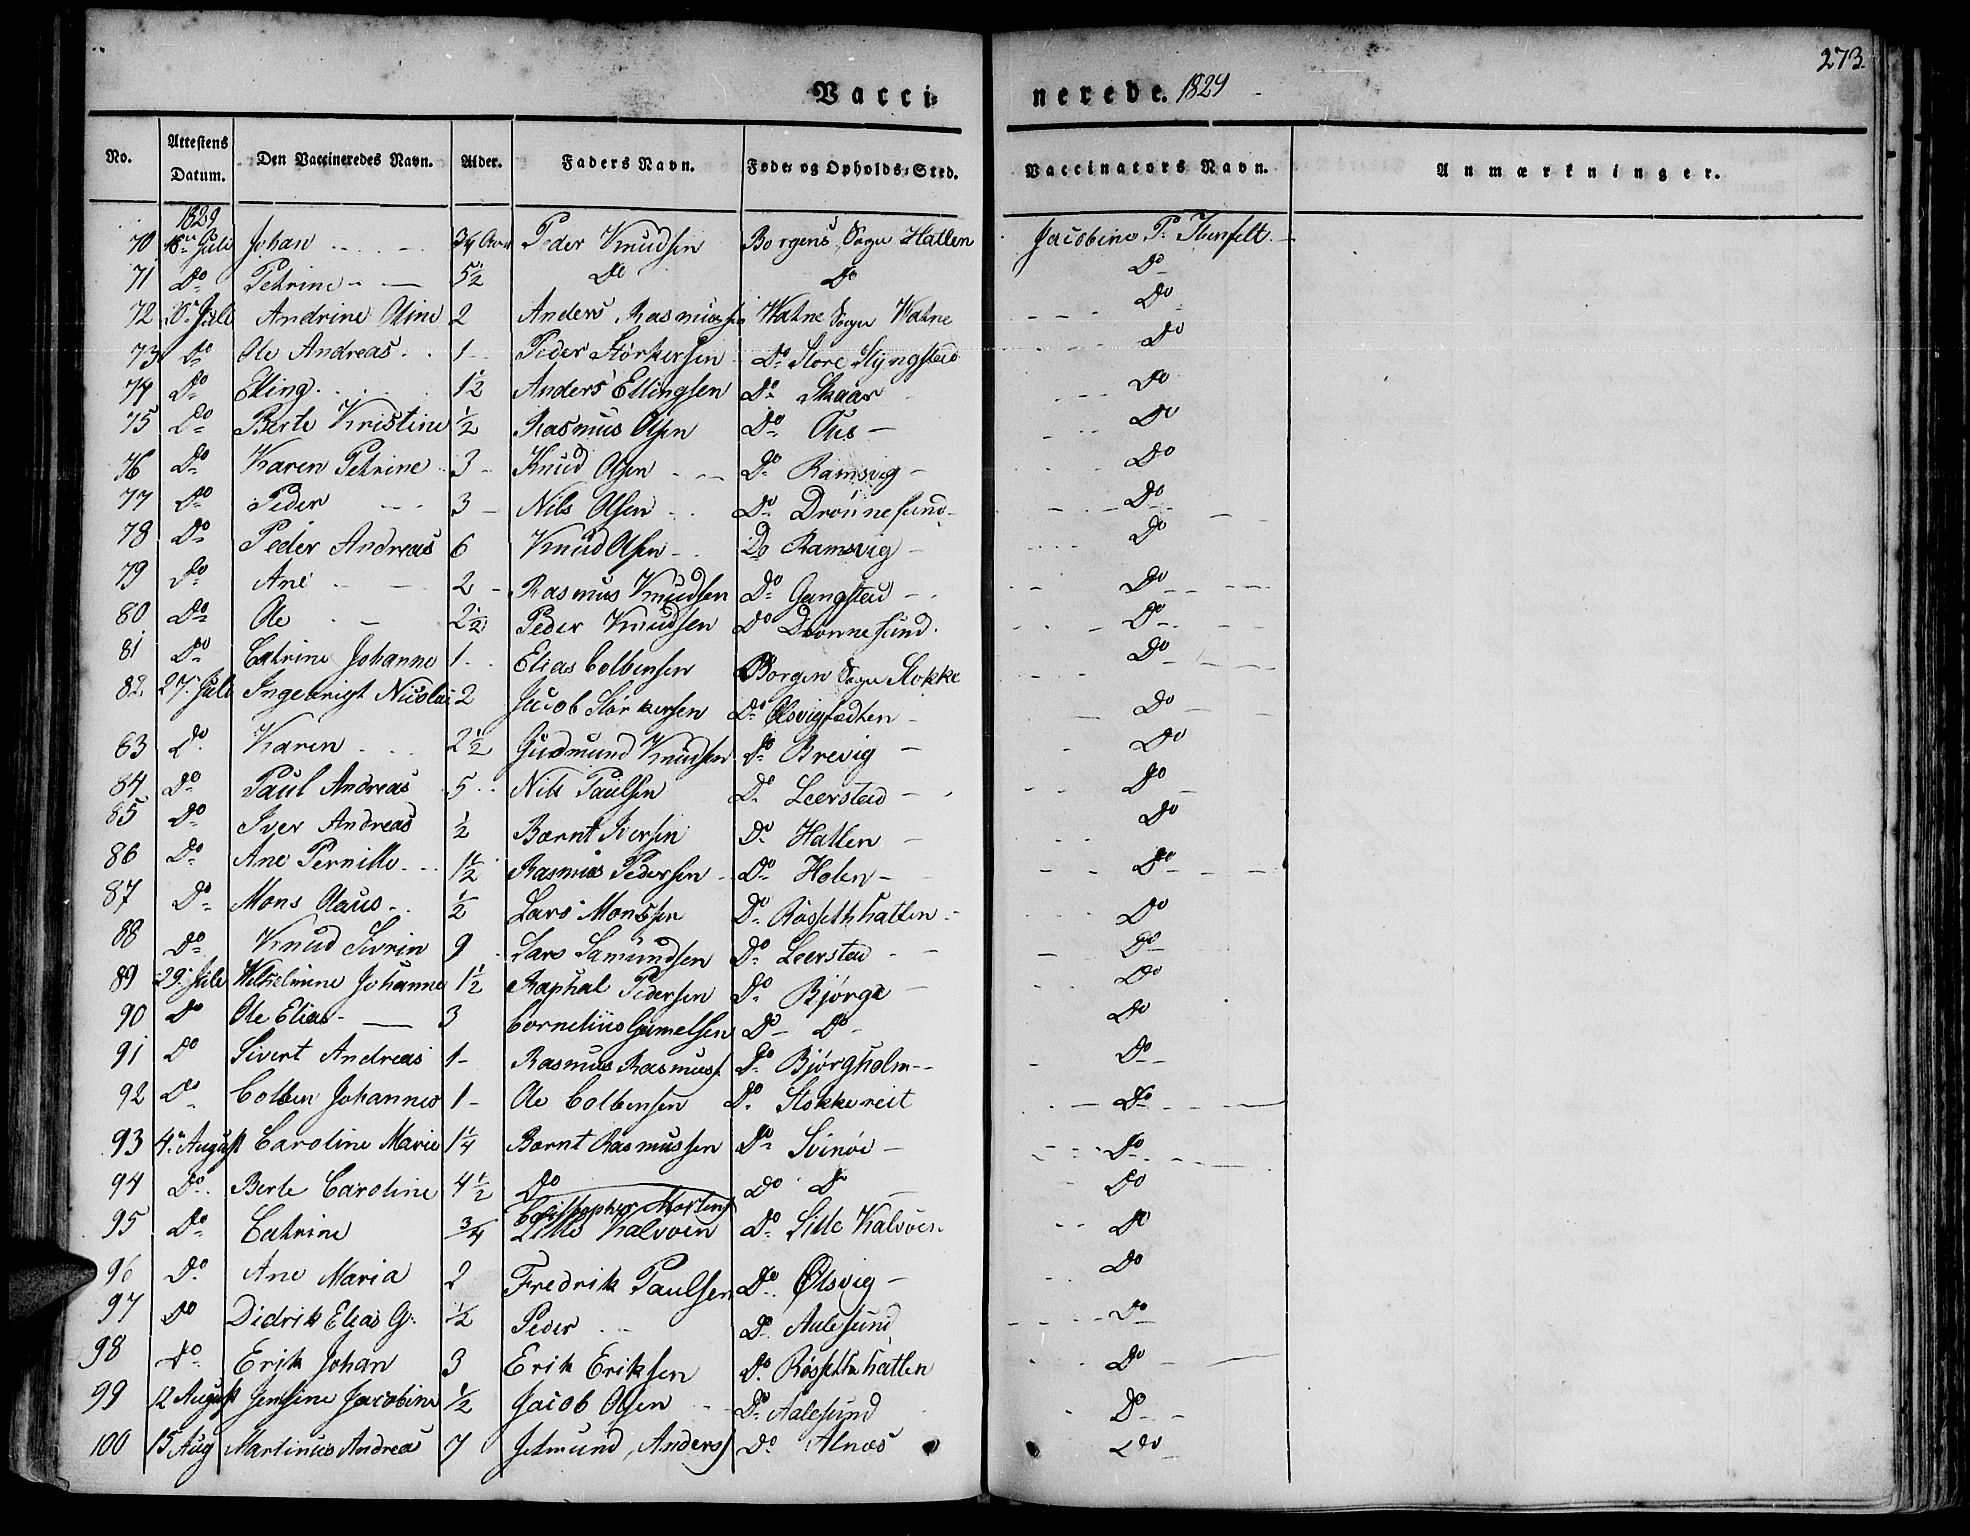 273.
Vacci- nerede. 1829
No. Attestens Datum. Den Vaccineredes Navn. Alder. Faders Navn. Føde- og Opholds-Sted. Vaccinators Navn. Anmærkninger.
1829
70 Juli Johan 3/4 Peder Knudsen Borgens Sogn Hatlen Jacobine P.
71 Do Petrine 5 1/2 Do Do Do
72 Juli Andrine Oline 2 Anders Watne Sogn Watne Do
73 Do Ole Andreas 1 Peder Størkersen Do Store Do
74 Do Elling 1 1/2 Anders Ellingsen Do Skaar Do
75 Do Berte Kristine 1/2 Rasmus Olsen Do Do
76 Do Karen Petrine 3 Knud Olsen Do Ramsvig Do
77 Do Peder 3 Nils Olsen Do Drønnesund Do
78 Do Peder Andreas 6 Knud Olsen Do Ramsvig Do
79 Do Ane 2 Rasmus Knudsen Do Gangstad Do
80 Do Ole 2 1/2 Peder Knudsen Do Drønnesund Do
81 Do Catrine Johanne 1 Elias Colbensen Borgen Sogn Stokke Do
82 27 Juli Ingebrigt Nicolai 2 Jacob Størkersen Do Do
83 Do Karen 2 1/2 Gudmund Knudsen Do Brevig Do
84 Do Paul Andreas 5 Nils Paulsen Do Leerstad Do
85 Do Iver Andreas 1/2 Bernt Iversen Do Hatlen Do
86 Do Ane Pernille 1 1/2 Rasmus Pedersen Do Holen Do
87 Do Mons Olaus 1/2 Lars Monssen Do Røssethhatlen Do
88 Do Knud Sivrin 9 Lars Samundsen Do Leerstad Do
89 29 Juli Wilhelmine Johanne 1 1/2 Raphal Pedersen Do Bjørge Do
90 Do Ole Elias 3 Cornelius Gamelsen Do Do Do
91 Do Sivert Andreas 1 Rasmus Rasmuss. Do Bjørgholm Do
92 Do Colben Johannes 1 Ole Colbensen Do Stokkereit Do
93 4 August Caroline Marie 1 1/4 Bernt Rasmussen Do Svinøe Do
94 Do Berte Caroline 4 1/2 Do Do Do Do
95 Do Catrine 3/4 Christopher Mortens Lille Kalvøen Do Lille Kalvøen Do
96 Do Ane Maria 2 Fredrik Paulsen Do Olsvig Do
97 Do Didrik Elias G. 1/2 Peder Do Aalesund Do
98 Do Erik Johan 3 Erik Eriksen Do Røssethhatlen Do
99 12 August Jensine Jacobine 1/2 Jacob Olsen Do Aalesund Do
100 15 Aug Martinus Andreas 7 Jetmund Anders. Do Alnæs Do